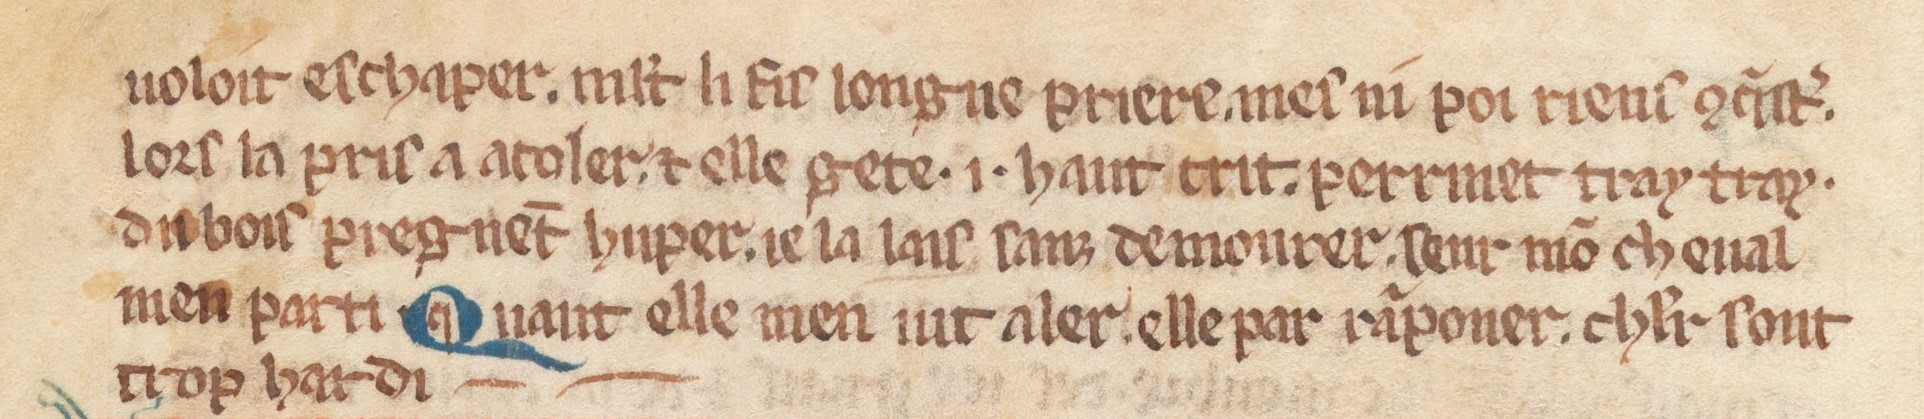 uoloit eschaper. mlt̃ li fis longue priere. mes ni poi riens ꝯq̃str̃.
lors la pris a acoler. ⁊ elle gete .i. haut crit. perrinet tray tray.
du bois pregnẽt huper. ie la lais sanz demourer. seur mõ cheual
men parti. Quant elle men uit aler. elle par rãponer. chl̃r sont
trop hardi